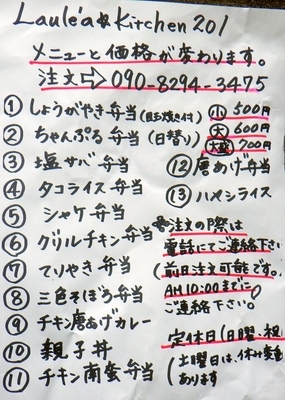 Laule'a☆Kitchen 201
メニューと価格が変わります。
注文⇨090-8294-3475
① しょうがやき弁当(目玉焼き付)
② ちゃんぷる弁当(日替り)
③ 塩サバ弁当
④ タコライス弁当
⑤ シャケ弁当
⑥ グリルチキン弁当
⑦ てりやき弁当
⑧ 三色そぼろ弁当
⑨ チキン唐あげカレー
⑩ 親子丼
⑪ チキン南蛮弁当
小 500円
大 600円
大盛 700円
⑫ 唐あげ弁当
⑬ ハヤシライス
※注文の際は
電話にてご連絡下さい
(前日注文可能です。
AM10:00までに)
ご連絡下さい。
定休日(日曜、祝
(土曜日は、休み
あります